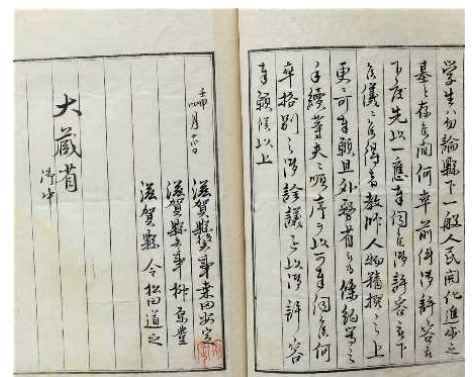 学生ハ勿論縣下一般人民開化進歩之
基ニ存候間何卒前件御許容被
下度先以一應奉伺候御許容被下
候儀ニ候得者教師人物精撰之上
更ニ可奉願且外務省ニ而條約等之
手續等夫々順序ヲ以可奉伺候何
卒格別之御詮議ヲ以御許容
奉願候以上
壬申四月
滋賀縣
滋賀縣
滋賀縣令松田道之
大蔵省
御中